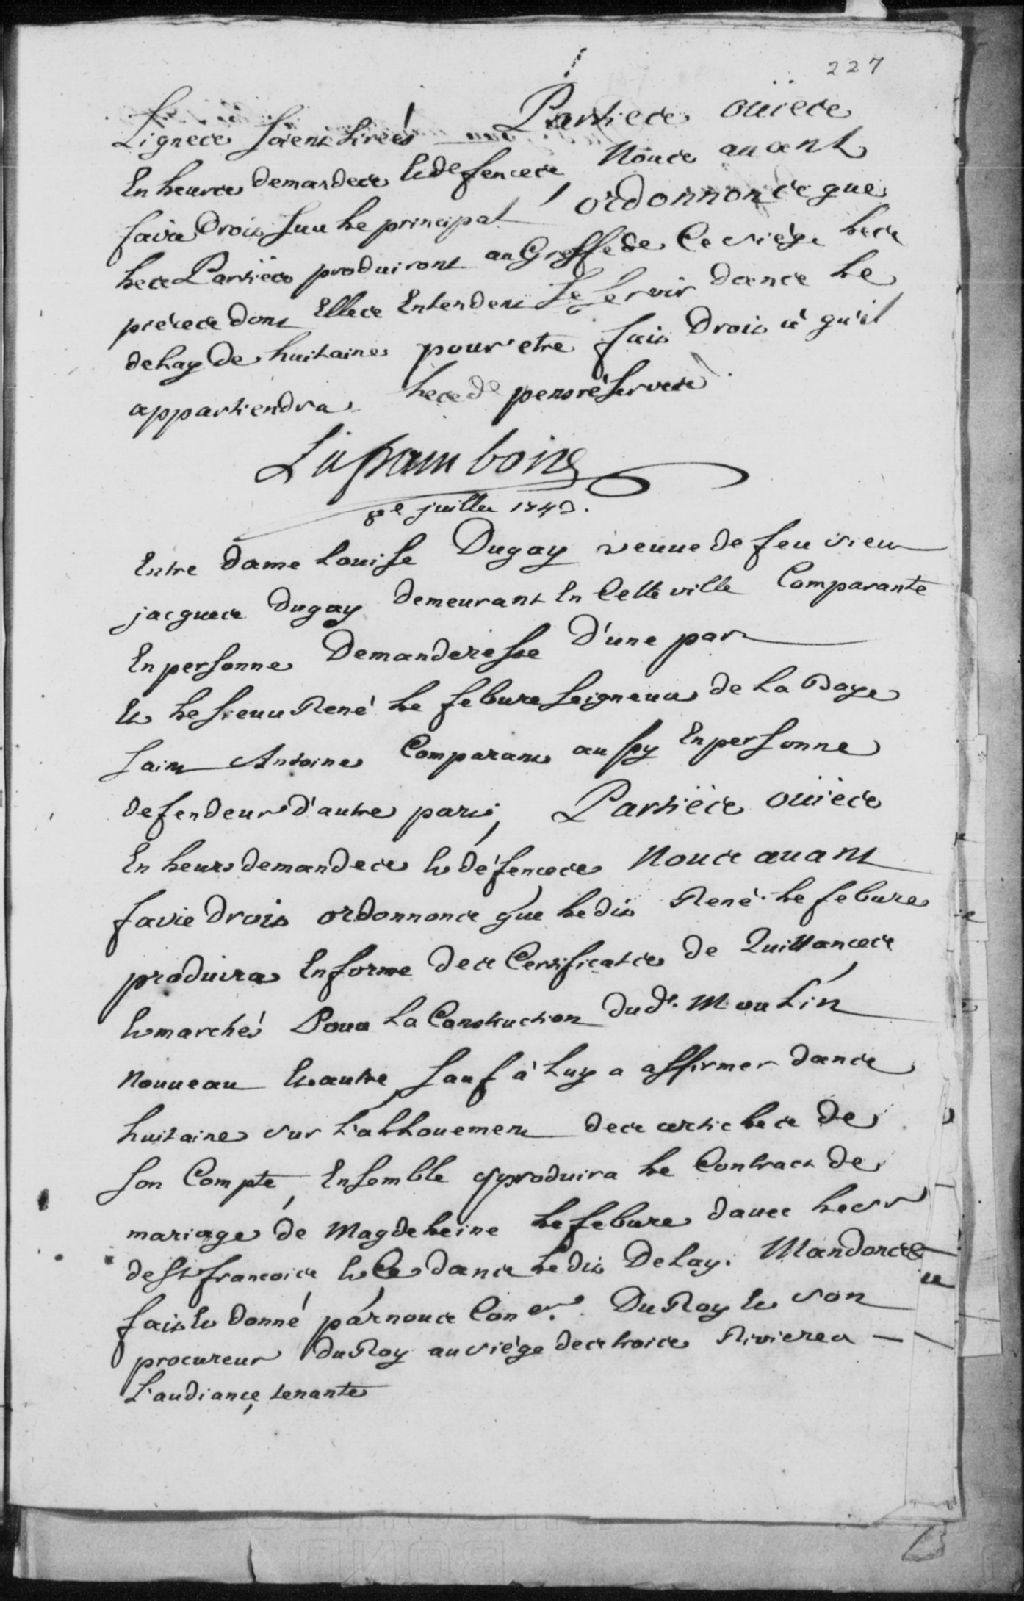 227
Lignes soient tirées Parties ouies
En leurs demandes et defences Nous avant
faire Droit sur le principal ordonnons que
les Parties produiront au Greffe de Ce siége les
piéces dont Elles Entendent se servir dans le
delay de huitaine pour etre fait Droit ce qu'il
appartiendra les dépens réservés
Laframboise
8e juillet 1743.
Entre dame Louise Dugay veuve de feu sieur
jacques Dugay demeurant En Cette ville Comparante
En personne Demanderesse D'une part
Et le sieur René le febure seigneur de la Baye
saint Antoine Comparant aussy En personne
defendeur d'autre part, Parties ouies
En leurs demandes et défences Nous avant
faire Droit ordonnons que ledit René le febure
produira En forme des Certificats de Quittances
le marché Pour la Construction dudt. Moulin
nouveau et autre sauf à luy a affirmer dans
huitaine sur l'allouement des articles de
son Compte, Ensemble produira le Contract de
mariage de Magdeleine le febure davec le sr
de st francois et Ce dans ledit Delay. Mandons
fait et donné par nous Coner. Du Roy et son
procureur du Roy au siége des trois Rivieres
L'audiance tenante